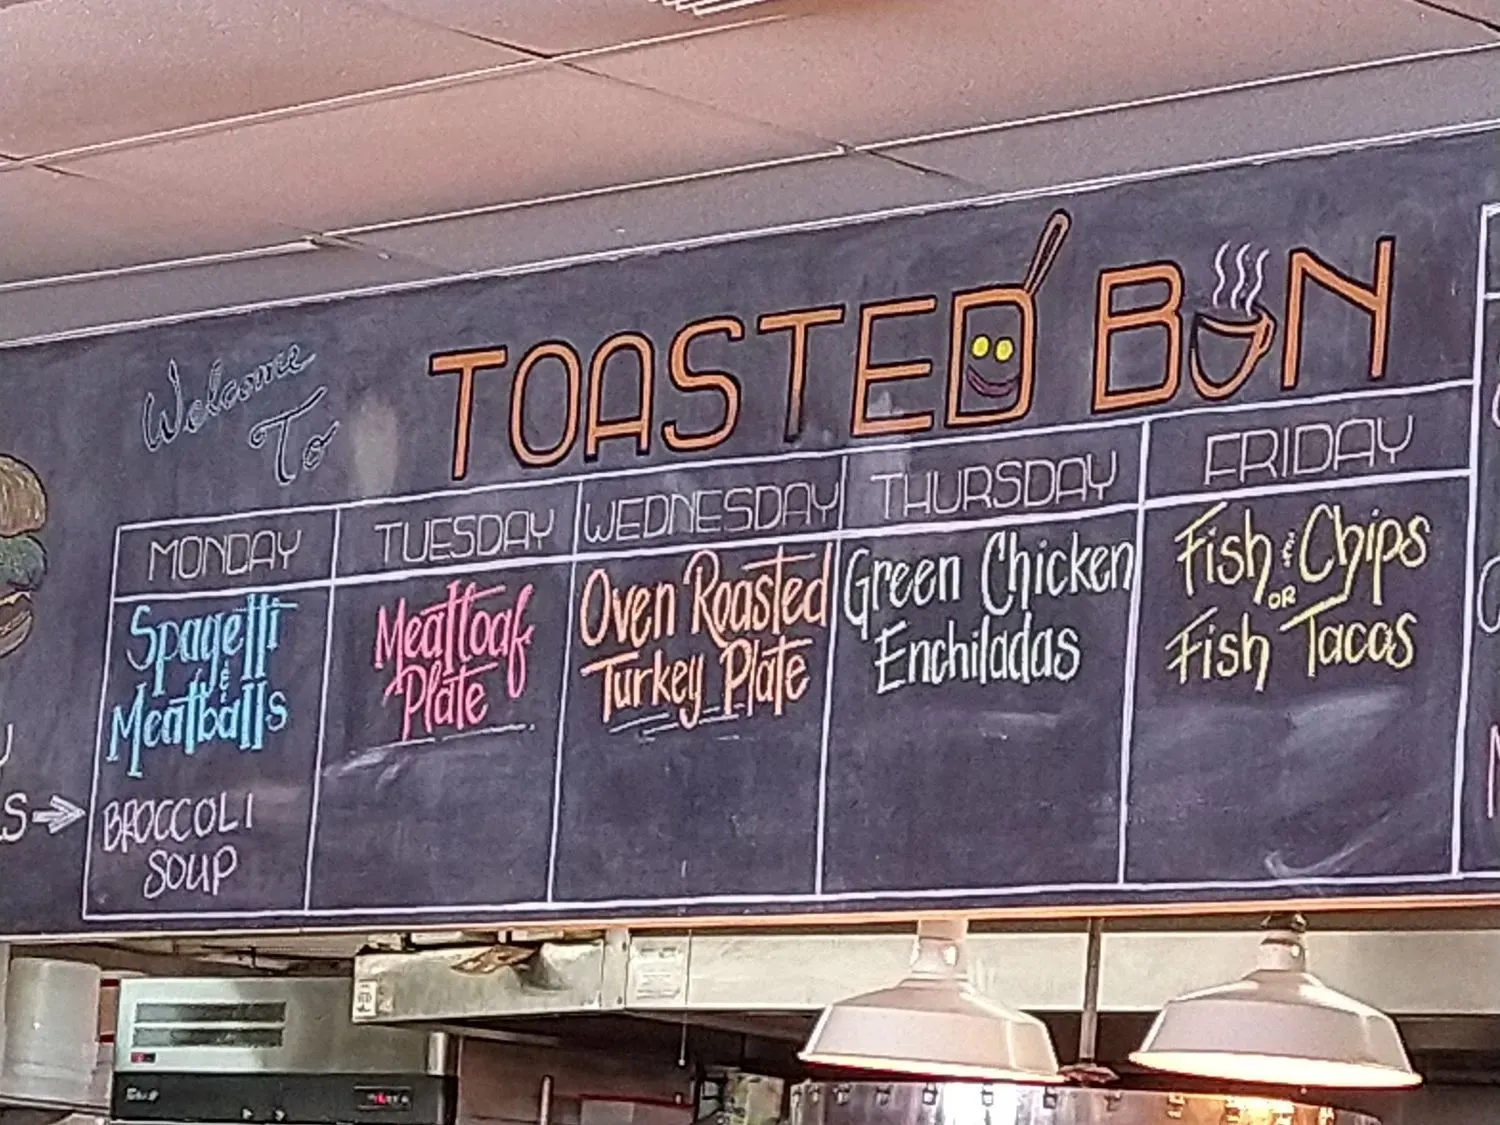 Welcome
To
TOASTED BUN
MONDAY
Spagetti
&
Meatballs
BROCCOLI
SOUP
TUESDAY
Meatloaf
Plate
WEDNESDAY
Oven Roasted
Turkey Plate
THURSDAY
Green Chicken
Enchiladas
FRIDAY
Fish & Chips
OR
Fish Tacos